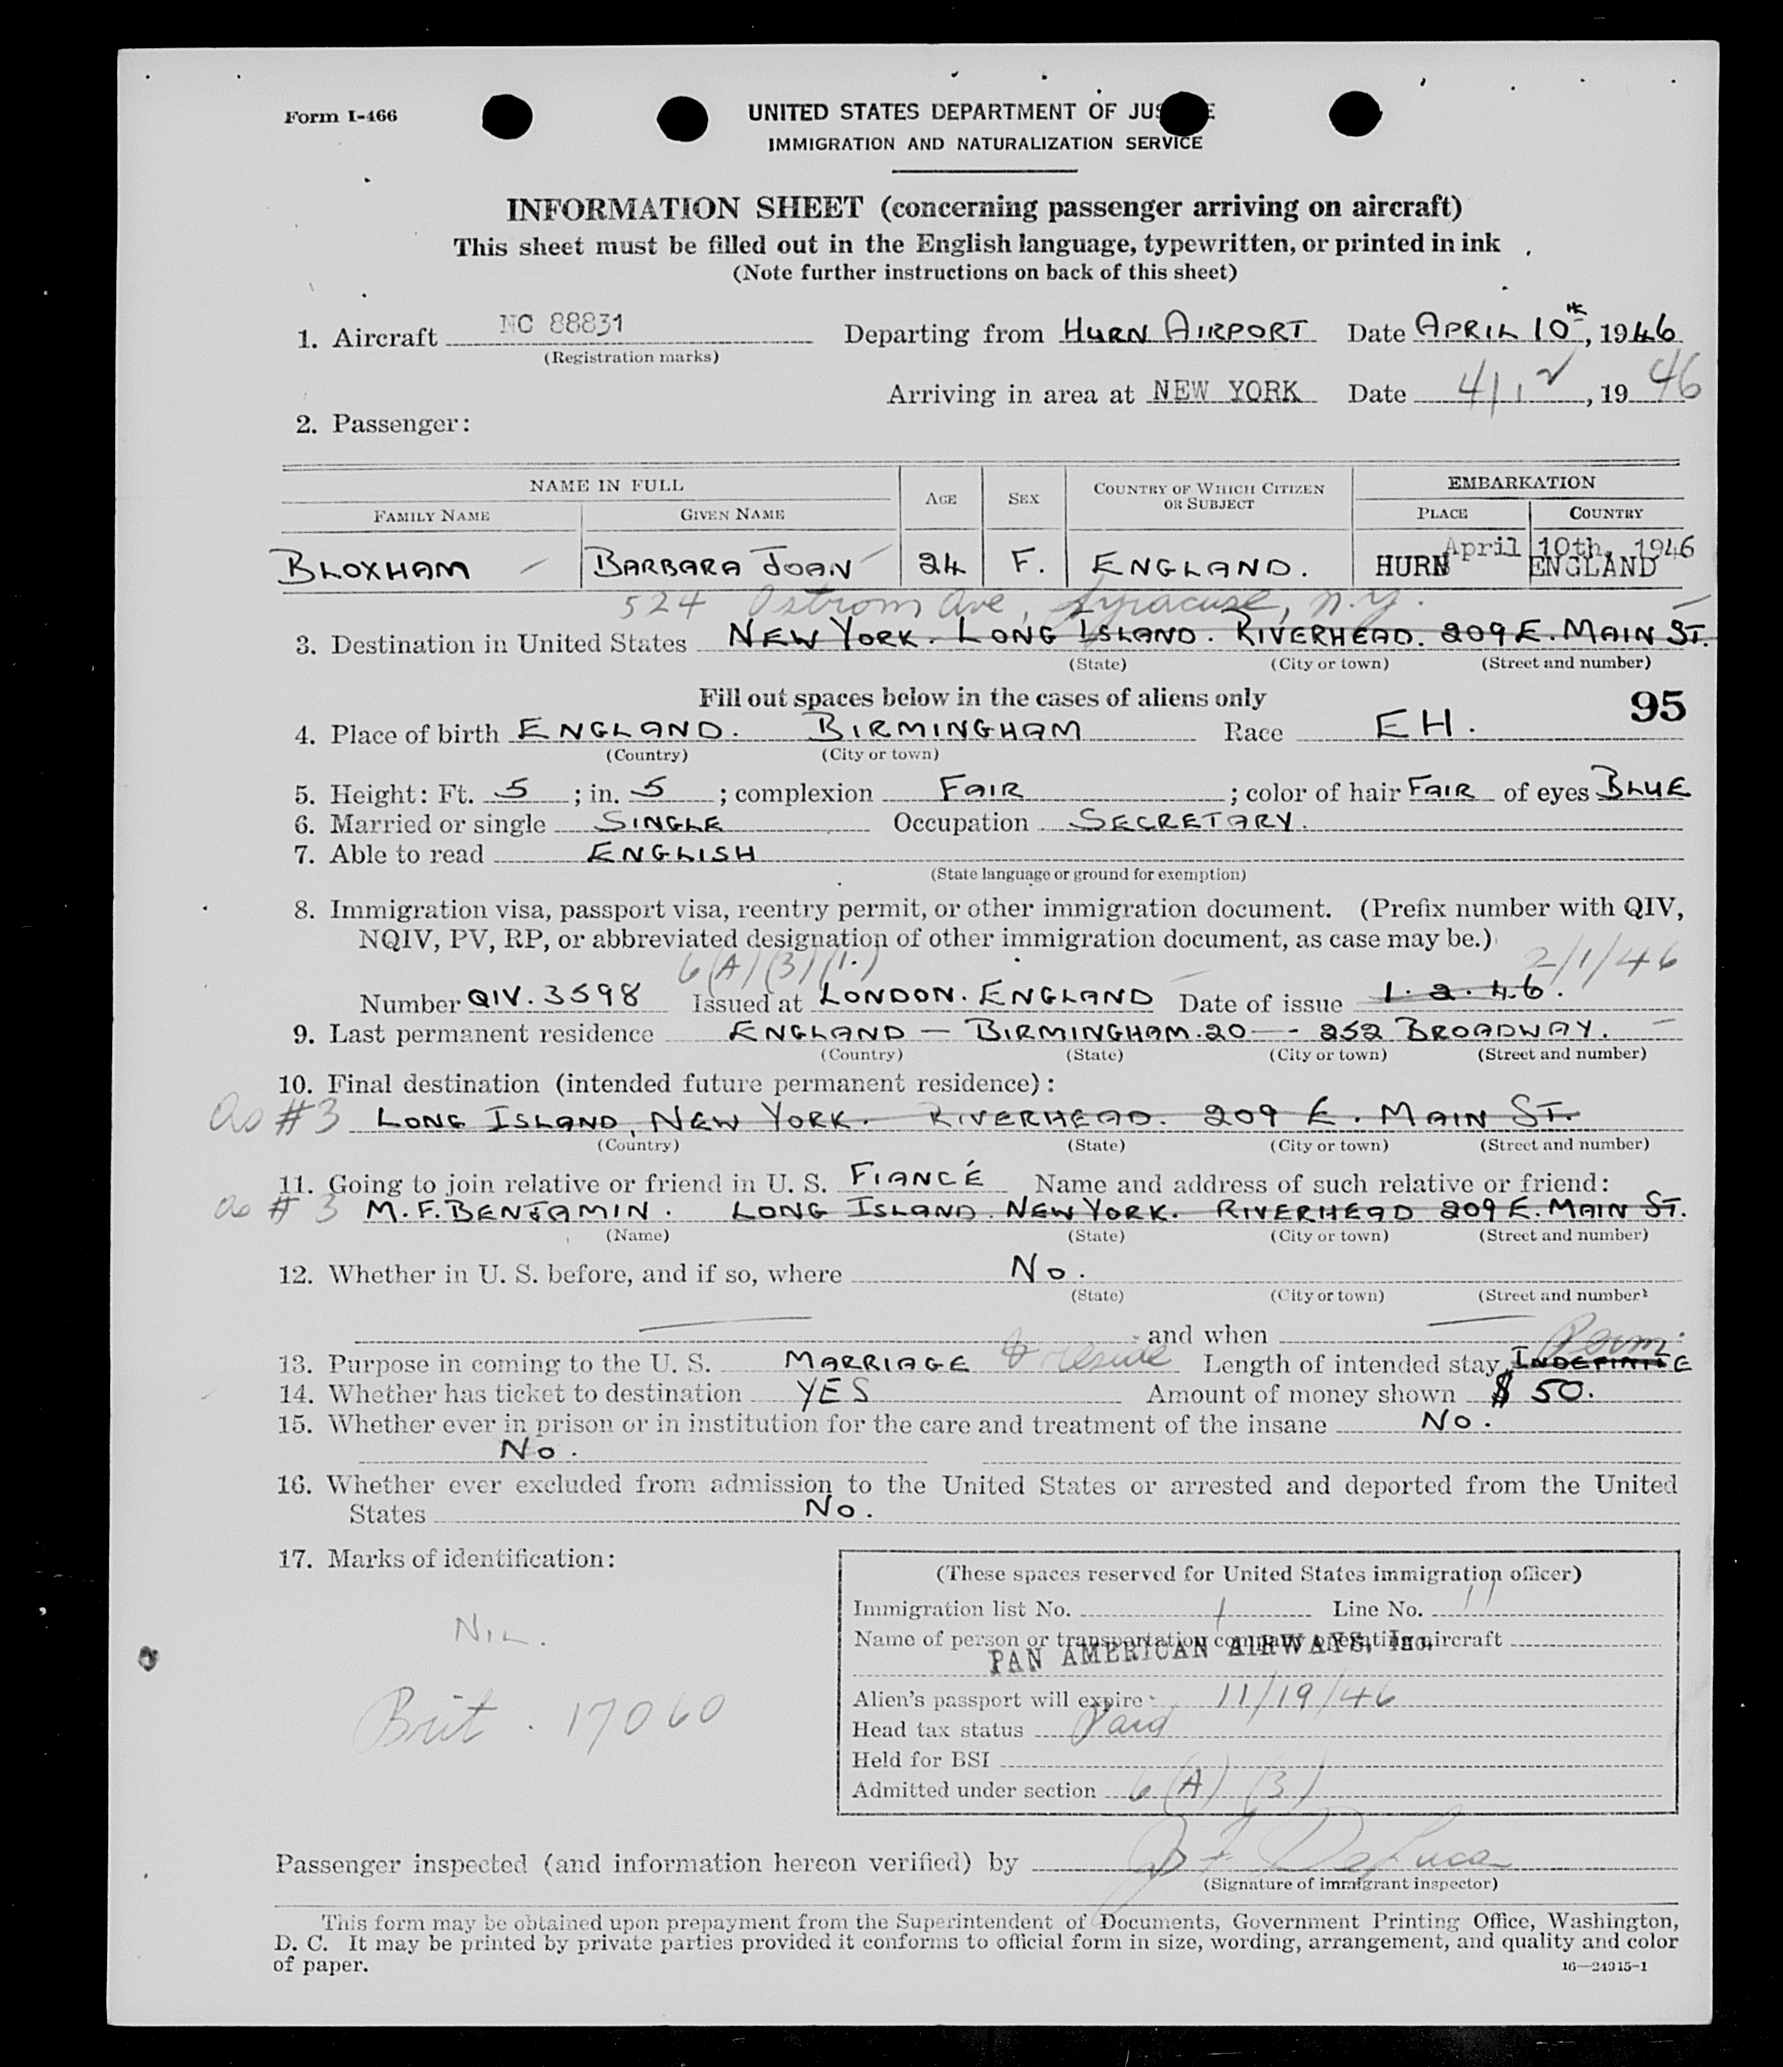 Form I-466
UNITED STATES DEPARTMENT OF JUS E
IMMIGRATION AND NATURALIZATION SERVICE
INFORMATION SHEET (concerning passenger arriving on aircraft)
This sheet must be filled out in the English language, typewritten, or printed in ink
(Note further instructions on back of this sheet)
1. Aircraft NC 88831 Departing from HURN AIRPORT Date APRIL 10th, 1946
(Registration marks)
Arriving in area at NEW YORK Date 4/12, 1946
2. Passenger:
NAME IN FULL AGE SEX COUNTRY OF WHICH CITIZEN OR SUBJECT EMBARKATION
FAMILY NAME GIVEN NAME PLACE COUNTRY
April 10th, 1946
BLOXHAM BARBARA JOAN 24 F. ENGLAND. HURN ENGLAND
524 Ostrom Ave, Syracuse, N.Y.
3. Destination in United States NEW YORK. LONG ISLAND. RIVERHEAD. 209 E. MAIN ST.
(State) (City or town) (Street and number)
Fill out spaces below in the cases of aliens only 95
4. Place of birth ENGLAND. BIRMINGHAM Race EH.
(Country) (City or town)
5. Height: Ft. 5; in. 5; complexion FAIR; color of hair FAIR of eyes BLUE
6. Married or single SINGLE Occupation SECRETARY.
7. Able to read ENGLISH
(State language or ground for exemption)
8. Immigration visa, passport visa, reentry permit, or other immigration document. (Prefix number with QIV,
NQIV, PV, RP, or abbreviated designation of other immigration document, as case may be.)
6(A)(3)(1.) 2/1/46
Number QIV. 3598 Issued at LONDON. ENGLAND Date of issue 1. 2. 46.
9. Last permanent residence ENGLAND — BIRMINGHAM. 20 — 252 BROADWAY.
(Country) (State) (City or town) (Street and number)
10. Final destination (intended future permanent residence):
As #3 LONG ISLAND, NEW YORK. RIVERHEAD. 209 E. MAIN ST.
(Country) (State) (City or town) (Street and number)
11. Going to join relative or friend in U. S. FIANCÉ Name and address of such relative or friend:
as #3 M. F. BENJAMIN. LONG ISLAND. NEW YORK. RIVERHEAD 209 E. MAIN ST.
(Name) (State) (City or town) (Street and number)
12. Whether in U. S. before, and if so, where NO.
(State) (City or town) (Street and number)
and when
Perm.
13. Purpose in coming to the U. S. MARRIAGE & reside Length of intended stay INDEFINITE
14. Whether has ticket to destination YES Amount of money shown $ 50.
15. Whether ever in prison or in institution for the care and treatment of the insane NO.
NO.
16. Whether ever excluded from admission to the United States or arrested and deported from the United
States NO.
17. Marks of identification:
NIL.
Brit. 17060
(These spaces reserved for United States immigration officer)
Immigration list No. 1 Line No. 11
Name of person or transportation company operating aircraft
PAN AMERICAN AIRWAYS, Inc.
Alien's passport will expire 11/19/46
Head tax status Paid
Held for BSI
Admitted under section 6(A)(3)
Passenger inspected (and information hereon verified) by J F DeLuca
(Signature of immigrant inspector)
This form may be obtained upon prepayment from the Superintendent of Documents, Government Printing Office, Washington,
D. C. It may be printed by private parties provided it conforms to official form in size, wording, arrangement, and quality and color
of paper. 16—24915-1